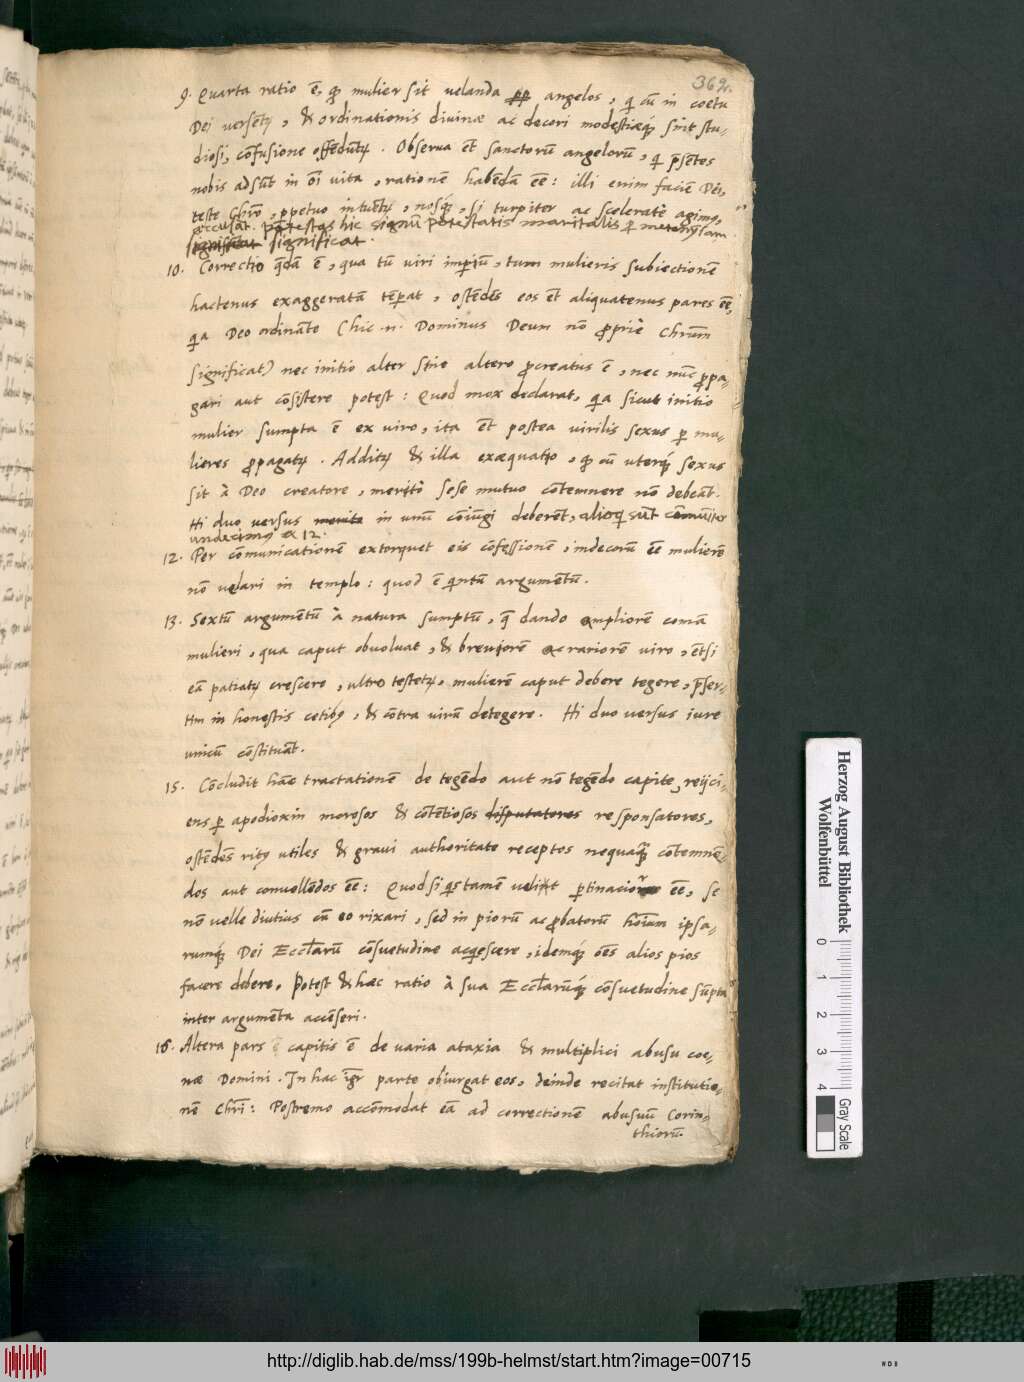 362.
9. Quarta ratio ē, qd mulier sit uelanda pp angelos, qi cū in coetu
Dei versent, & ordinationis divinæ ac decori modestiæq sint stu-
diosi, cōfusione offēdunt. Observa et sanctorū angelorū, qi pn̄tes
nobis adsūt in oī vita, rationē habēdā eē: illi enim faciē Dei,
teste Chrō, ppetuo intuent, nosq, si turpiter ac sceleratè agimus,
accusāt. Ptestas hic signū potestatis maritalis p metonymiam
significat significat.
10. Correctio qdā ē, qua tū viri impiū, tum mulieris subiectionē
hactenus exaggeratā tēpat, ostēdēs eos et aliquatenus pares eē,
qa Deo ordināte (hic .n. Dominus Deum nō propriè Chrūm
significat) nec initio alter sine altero procreatus ē, nec nūc propa-
gari aut cōsistere potest: Quod mox declarat, qa sicut initio
mulier sumpta ē ex viro, ita et postea virilis sexus p mu-
lieres propagat. Addit & illa exæquatio, qd cū uterq sexus
sit à Deo creatore, merito sese mutuo cōtemnere nō debeāt.
Hi duo versus merito in unū cōiūgi deberēt, alioqi sūt cōmuniter
undecimus & 12.
12. Per cōmunicationē extorquet eis cōfessionē, indecorū eē mulierē
nō velari in templo: quod ē qintū argumētū.
13. Sextū argumētū à natura sumptū, qæ dando ampliorē comā
mulieri, qua caput obvolvat, & breviorē ac rariorē viro, etsi
eā patiat crescere, ultro testet, mulierē caput debere tegere, pser-
tim in honestis cetibus, & cōtra virū detegere. Hi duo versus iure
unicū cōstituāt.
15. Cōcludit hāc tractationē de tegēdo aut nō tegēdo capite, reijci-
ens p apodioxin morosos & cōtētiosos disputatores responsatores,
ostēdēs ritus utiles & gravi authoritate receptos nequaq cōtemnē-
dos aut convellēdos eē: Quod si qs tamen velit ptinacior eē, se
nō velle diutius cū eo rixari, sed in piorū ac probatorū hoīum ipsa-
rumq Dei Eccl̄arū cōsuetudine acqescere, idemq oēs alios pios
facere debere. Potest & hæc ratio à sua Eccl̄arūq cōsuetudine sūpta
inter argumēta accēseri.
16. Altera pars capitis ē de varia ataxia & multiplici abusu coe-
næ Domini. In hac igr parte obiurgat eos, deinde recitat institutio-
nē Chrī: Postremo accōmodat eā ad correctionē abusuū Corin-
thiorū.
Herzog August Bibliothek
Wolfenbüttel
0 1 2 3 4
Gray Scale
http://diglib.hab.de/mss/199b-helmst/start.htm?image=00715